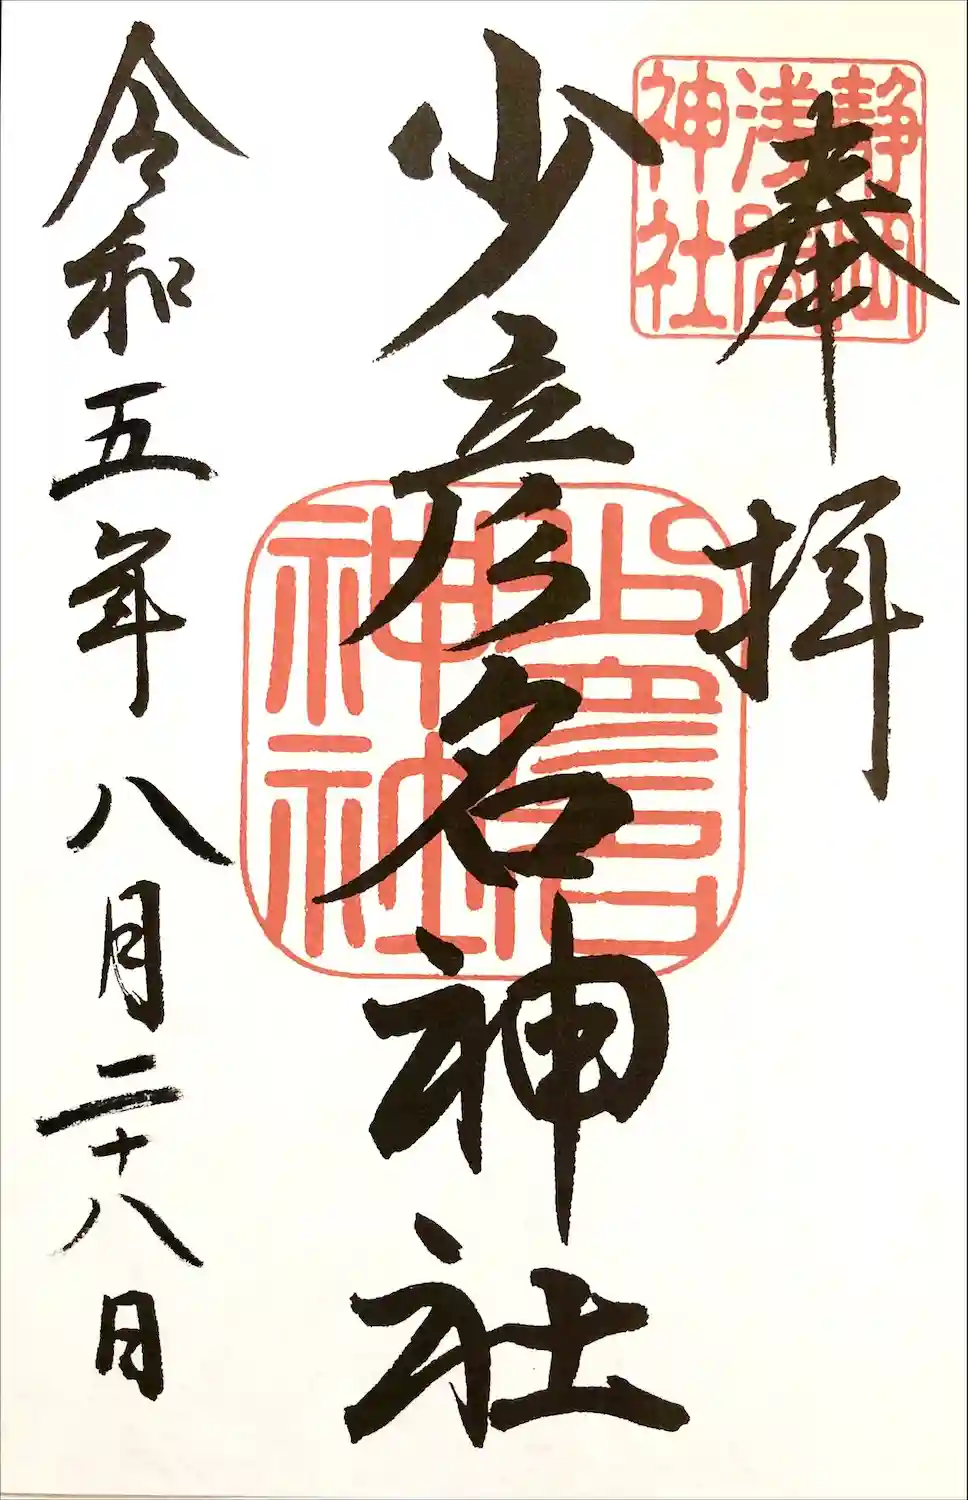 奉拝
静岡
浅間
神社
少彦名神社
神社
令和五年八月二十八日